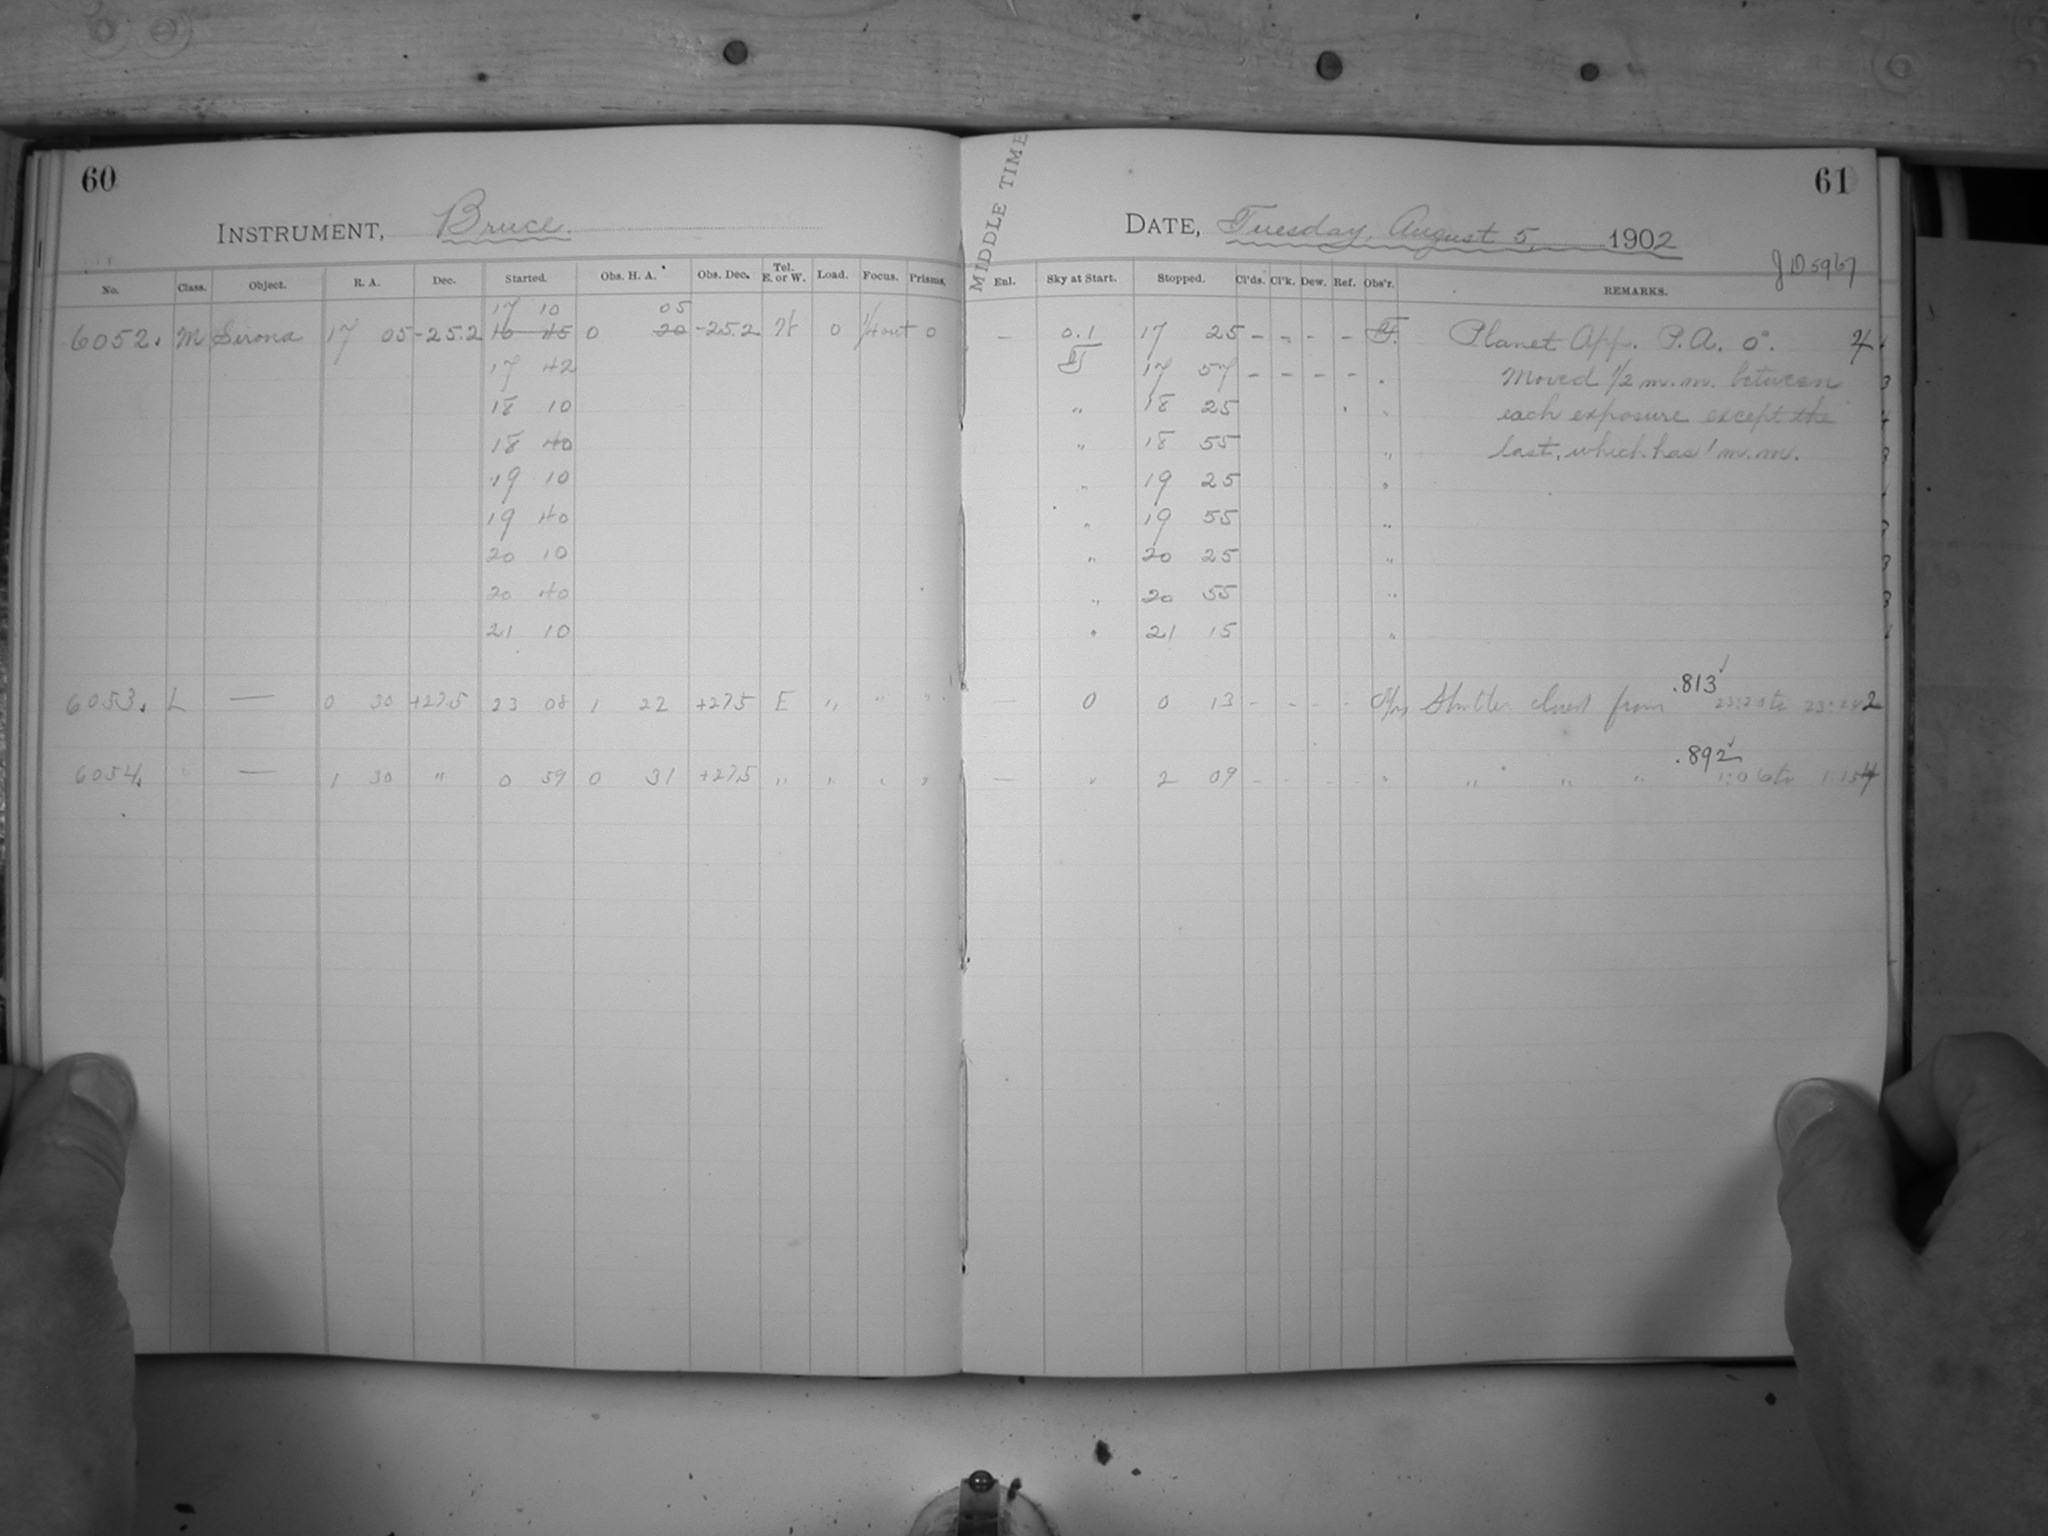 60
INSTRUMENT, Bruce.
No. Class. Object. R. A. Dec. Started. Obs. H. A. Obs. Dec. Tel. E. or W. Load. Focus. Prisms.
17 10 05
6052. M Sirona 17 05 -25.2 16 45 0 20 -25.2 W 0 1/4 out 0
17 42
18 10
18 40
19 10
19 40
20 10
20 40
21 10
6053. L — 0 30 +27.5 23 08 1 22 +27.5 E " " "
6054. " — 1 30 " 0 59 0 31 +27.5 " " " "
MIDDLE TIME
61
DATE, Tuesday, August 5, 1902
JD 5967
Enl. Sky at Start. Stopped. Cl'ds. Cl'k. Dew. Ref. Obs'r. REMARKS.
— 0.1 17 25 - - - - F. Planet App. P.A. 0°. 4
17 57 - - - - " Moved 1/2 m.m. between
" 18 25 " each exposure except the
" 18 55 " last, which has 1 m.m.
" 19 25 "
" 19 55 "
" 20 25 "
" 20 55 "
" 21 15 "
.813 ✓
— 0 0 13 - - - - Shutter closed from 23:20 to 2
.892 ✓
— " 2 09 - - - - " " " " 1:06 to 4